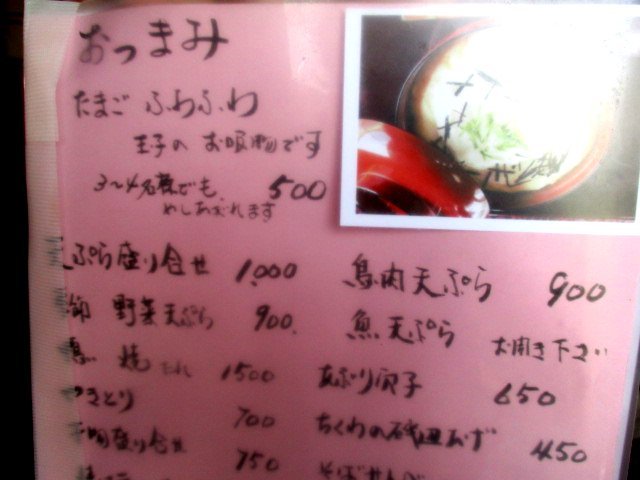 おつまみ
たまご ふわふわ
玉子の お吸物です
3~4名様でも 500
めしあがれます
天ぷら盛り合せ 1,000
野菜天ぷら 900
焼 たれ 1500
やきとり 700
盛り合せ 750
鳥肉天ぷら 900
魚天ぷら お聞き下さい
あぶり穴子 650
ちくわの磯辺あげ 450